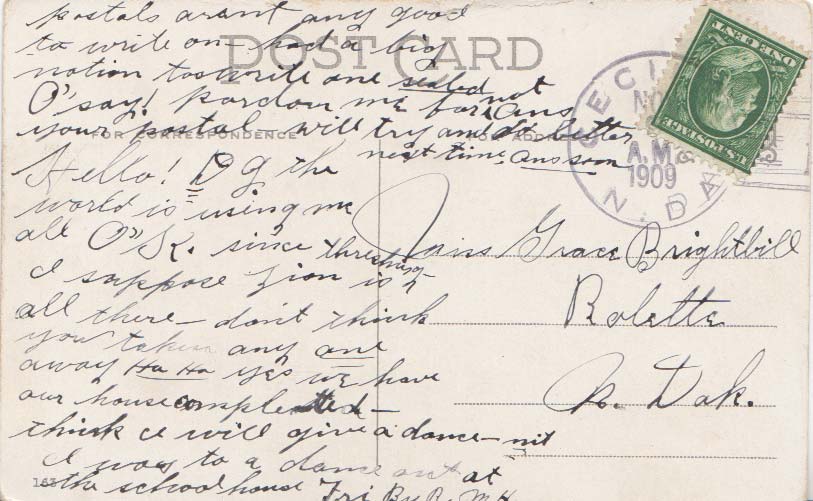 postals arent any good
to write on - had a big
notion to write one sealed
O'say! pardon me for not ans
your postal will try and do better
next time ans soon
POST CARD
FOR CORRESPONDENCE
FOR ADDRESS
Hello! D G the
world is using me
all O"K. since threshing
I suppose Zion is
all there - don't think
you taken any one
away Ha Ha yes we have
our house completed -
think I will give a dance - nit
I was to a dance out at
the schoolhouse Fri By R. M H
163
A.M.
1909
N. DA
U.S. POSTAGE
ONE CENT
Grace Brightbill
Rolette
N. Dak.